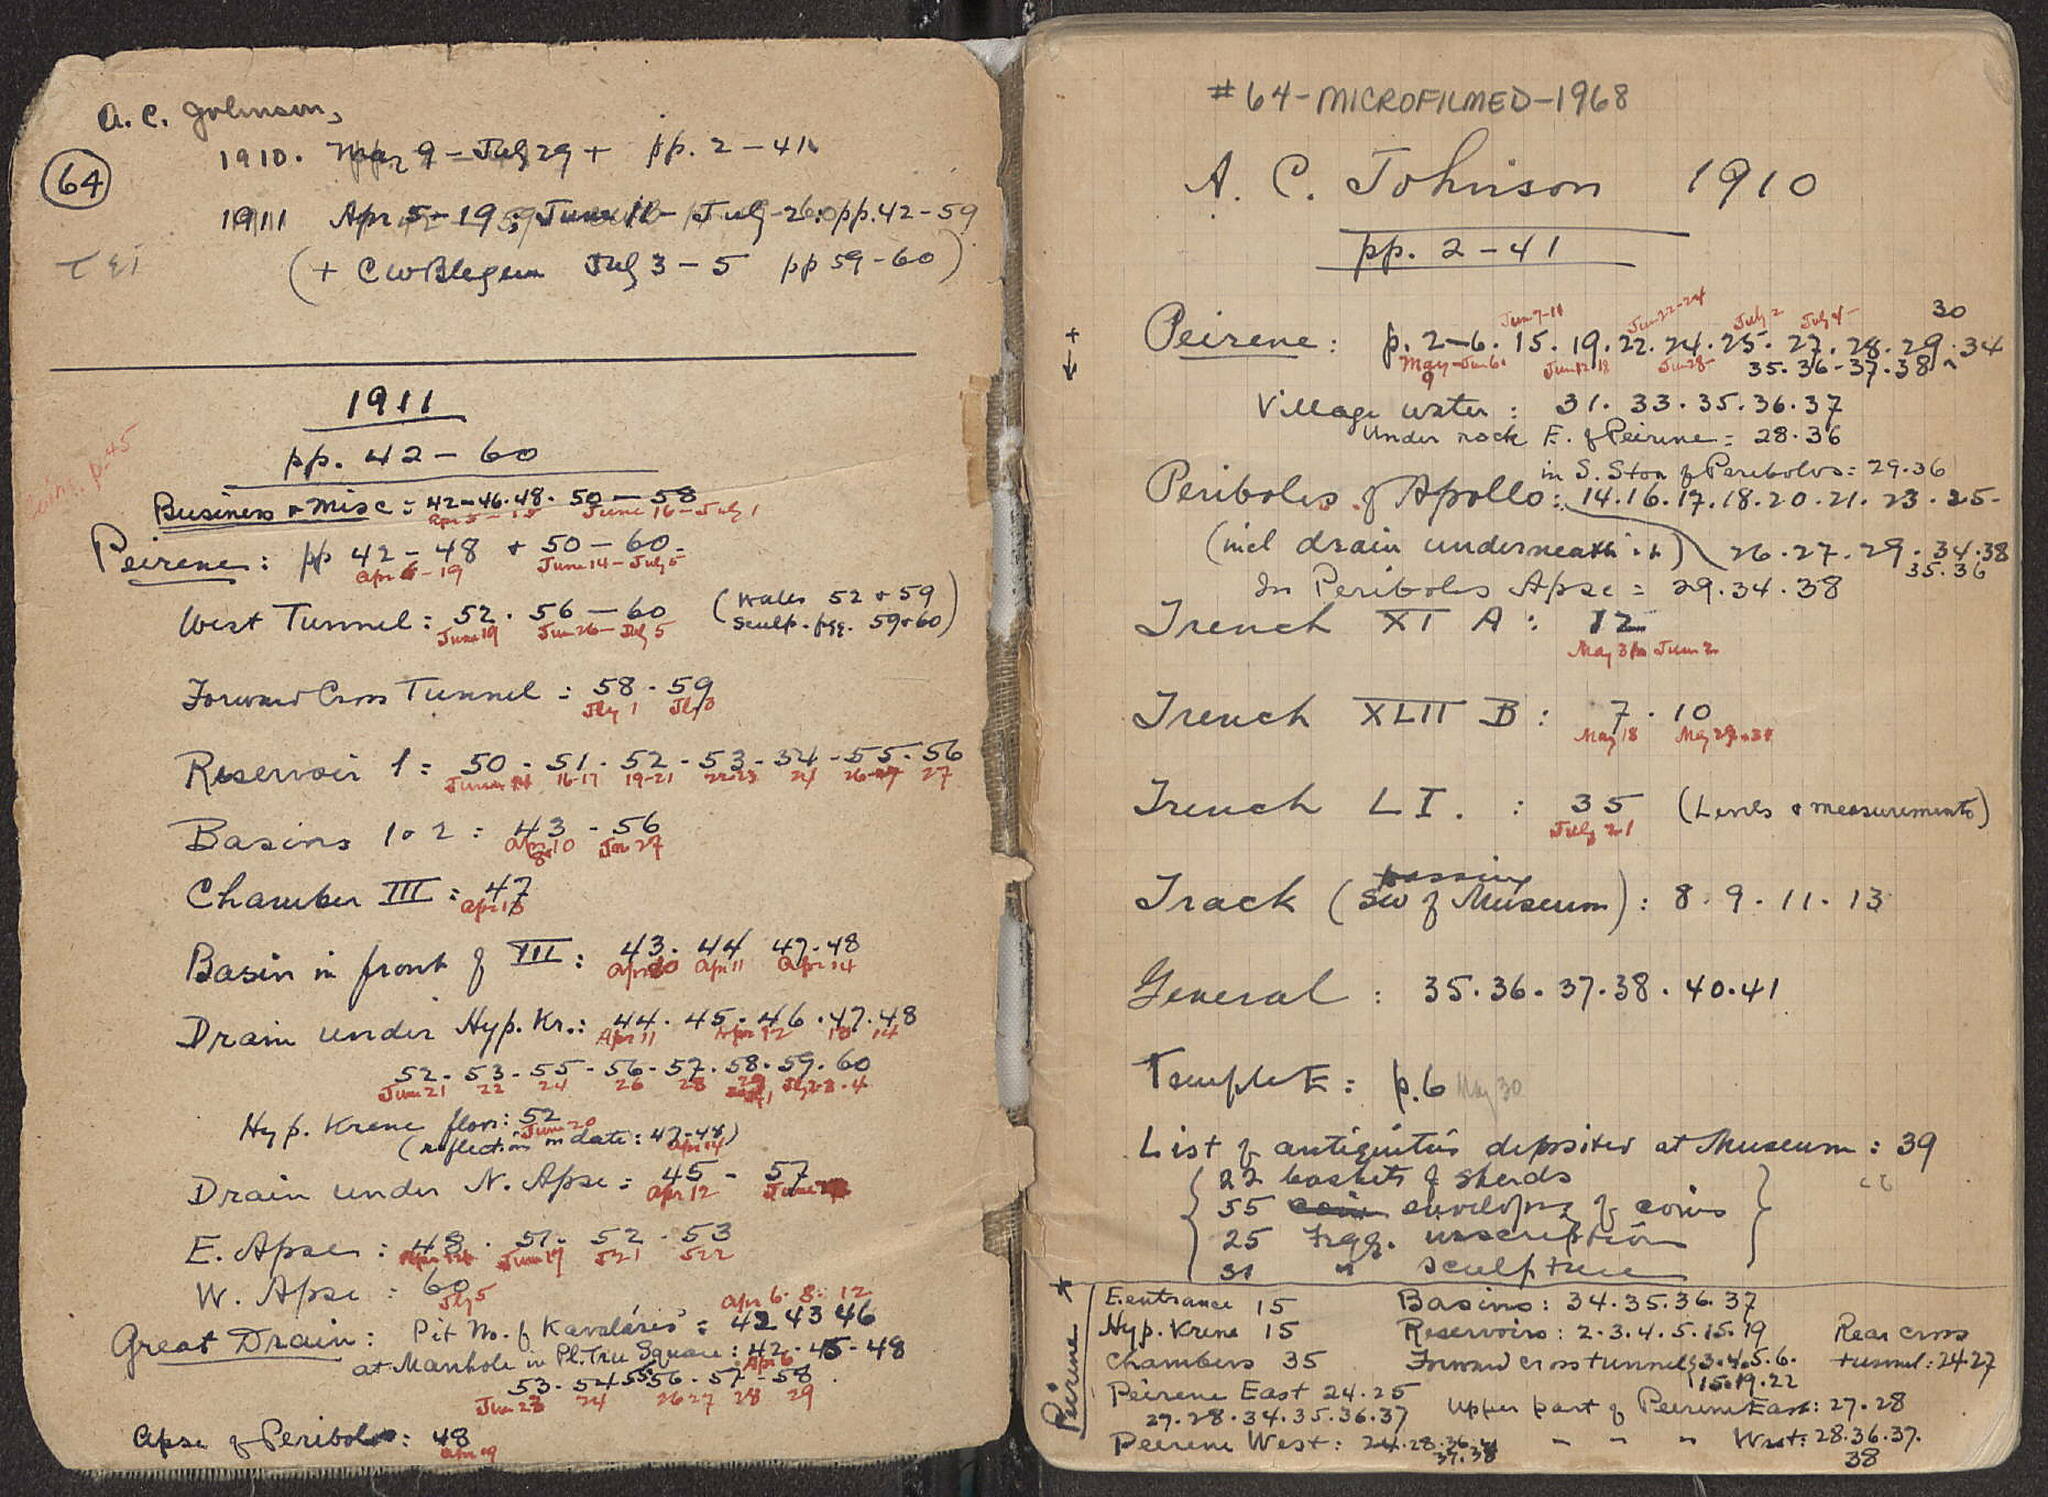 A. C. Johnson,
64
1910. Mar 9 - July 29 + pp. 2 - 41
1911 Apr 5 - 19; June 11 - July 26: pp. 42 - 59
(+ CW Blegen July 3 - 5 pp 59 - 60)
1911
pp. 42 - 60
p. 45
Business & Misc = 42-46.48. 50 - 58
June 16 - July 1
Peirene: pp 42 - 48 + 50 - 60
Apr 6 - 19 June 14 - July 5
West Tunnel: 52. 56 - 60 (Walls 52 & 59
June 19 Jun 26 - July 5 Sculp. fgg. 59 & 60)
Forward Cross Tunnel: 58 - 59
Jly 1 Jly 3
Reservoir 1 = 50 - 51 - 52 - 53 - 54 - 55 - 56
16-17 19-21 22-23 24 27
Basins 1 & 2 : 43 - 56
Apr 10 Jun 27
8
Chamber III : 47
Basin in front of III : 43. 44 47-48
Apr 11 Apr 14
Drain under Hyp. Kr.: 44. 45. 46. 47. 48
Apr 11 Apr 12 14
52 - 53 - 55 - 56 - 57. 58. 59. 60
June 21 22 24 26 28 29
Hyp. Krene floor: 52
June 20
(reflection on date: 47-48)
Apr 14
Drain under N. Apse = 45 - 57
Apr 12 June
E. Apse : 48. 51. 52. 53
June 17 J21 J22
W. Apse : 60
Jly 5
Apr 6. 8. 12
Great Drain: Pit No. of Kavaláris = 42 43 46
at Manhole in Pl. Tree Square: 42 - 45 - 48
Apr 6
53 - 54 55 56 - 57 - 58
Jun 23 24 26 27 28 29
Apse of Peribolos: 48
Apr 19
#64-MICROFILMED-1968
A. C. Johnson 1910
pp. 2 - 41
Jun 7-11 Jun 22-24 July 2 July 4 30
Peirene: p. 2-6. 15. 19. 22. 24. 25. 27. 28. 29. 34
May 9 - Jun 6 Jun 12 18 Jun 28 35. 36-37. 38
Village water : 31. 33. 35. 36. 37
Under rock E. of Peirene = 28.36
in S. Stoa of Peribolos = 29.36
Peribolos of Apollo: 14.16.17.18.20.21.23.25-
(incl drain underneath it) 26.27.29.34.38
35.36
In Peribolos Apse = 29.34.38
Trench XI A : 12
May 31 Jun 2
Trench XLII B : 7. 10
May 18
Trench LI. : 35 (Levels & measurements)
July 21
passing
Track (SW of Museum) : 8. 9. 11. 13
General : 35.36.37.38.40.41
Temple E : p. 6 May 30
List of antiquities deposited at Museum : 39
22 baskets of sherds
55 envelopes of coins
25 Frgg. inscription
31 " sculpture
Peirene
E. entrance 15 Basins: 34.35.36.37
Hyp. Krene 15 Reservoirs: 2.3.4.5.15.19 Rear cross
Chambers 35 Forward cross tunnels 3.4.5.6. tunnel: 24.27
15.19.22
Peirene East 24.25
27.28.34.35.36.37 Upper part of Peirene East: 27.28
Peirene West: 24.28.36. - - " West: 28.36.37.
37.38 38